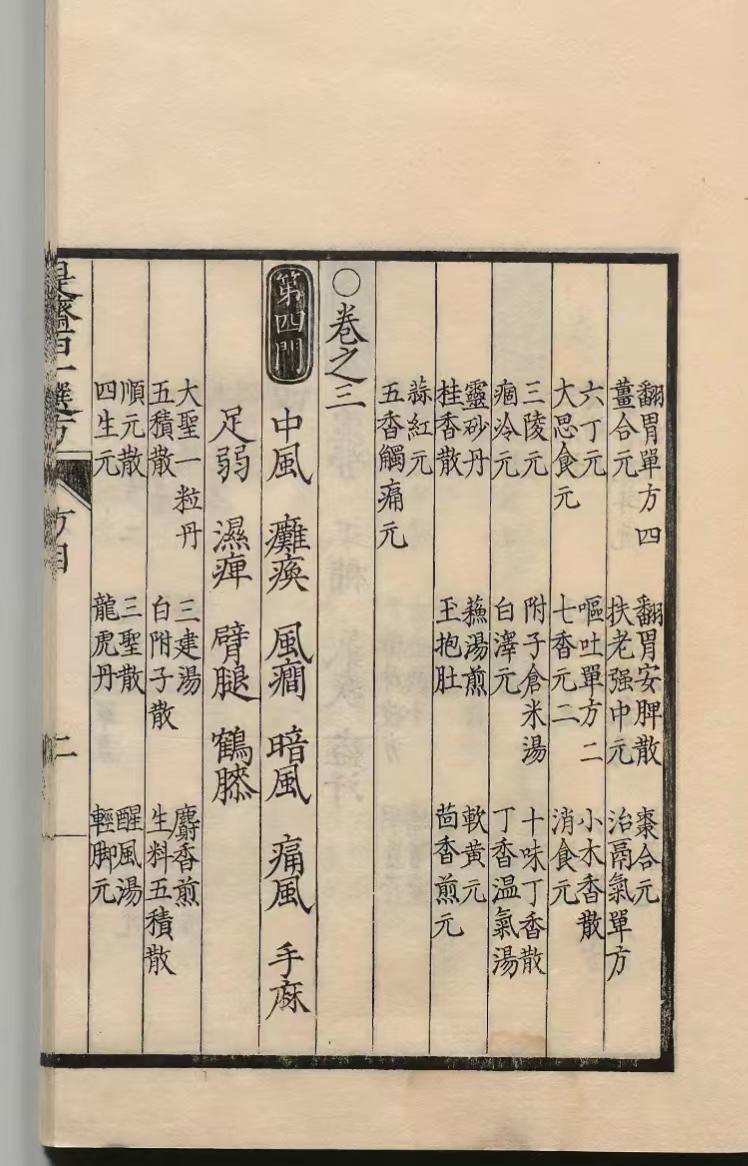 翻胃單方四 翻胃安脾散 棗合元
薑合元 扶老强中元 治鬲氣單方
六丁元 嘔吐單方二 小木香散
大思食元 七香元二 消食元
三陵元 附子倉米湯 十味丁香散
痼冷元 白澤元 丁香温氣湯
靈砂丹 蘓湯煎 軟黄元
桂香散 玉抱肚 茴香煎元
蒜紅元
五香觸痛元
○卷之三
第四門 中風 癱瘓 風癎 暗風 痛風 手麻
足弱 濕痺 臂腿 鶴膝
大聖一粒丹 三建湯 麝香煎
五積散 白附子散 生料五積散
順元散 三聖散 醒風湯
四生元 龍虎丹 輕脚元
是齋百一選方 方目 二